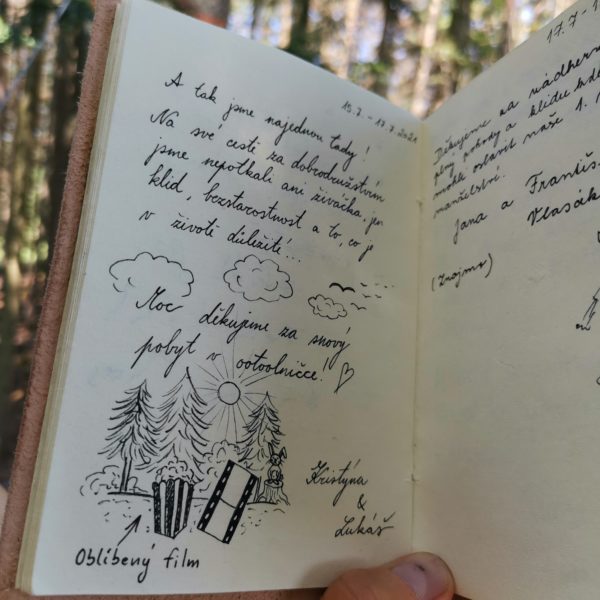 15.7. - 17.7. 2021
A tak jsme najednou tady!
Na své cestě za dobrodružstvím
jsme nepotkali ani živáčka, jen
klid, bezstarostnost a to, co je
v životě důležité...
Moc děkujeme za snový
pobyt v ootoolničce!
Kristýna
&
Lukáš
Oblíbený film
17.7 - 1
Děkujeme za nádhern
plný pohody a klidu kde
mohli oslavit naše 1.
manželství.
Jana a Františ
Vlasák
(Znojmo)